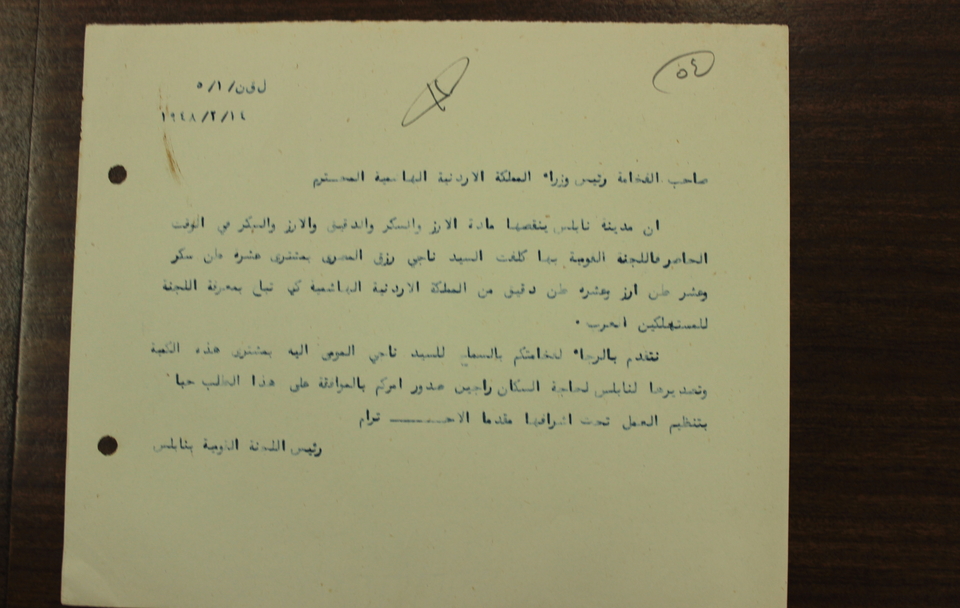 ٥٤
ل ق ن/٥/١
١٩٤٨/٢/١٤
صاحب الفخامة رئيس وزراء المملكة الاردنية الهاشمية المحترم
ان مدينة نابلس ينقصها مادة الارز والسكر والدقيق والارز والسكر في الوقت
الحاضر فاللجنة القومية بها كلفت السيد ناجي رزق المصري بمشترى عشرة طن سكر
وعشر طن ارز وعشرة طن دقيق من المملكة الاردنية الهاشمية كي تباع بمعرفة اللجنة
للمستهلكين العرب ٠
نتقدم بالرجاء لفخامتكم بالسماح للسيد ناجي المومى اليه بمشترى هذه الكمية
وتصديرها لنابلس لحاجة السكان راجين صدور امركم بالموافقة على هذا الطلب حبا
بتنظيم العمل تحت اشرافها مقدما الاحـــــــترام
رئيس اللجنة القومية بنابلس